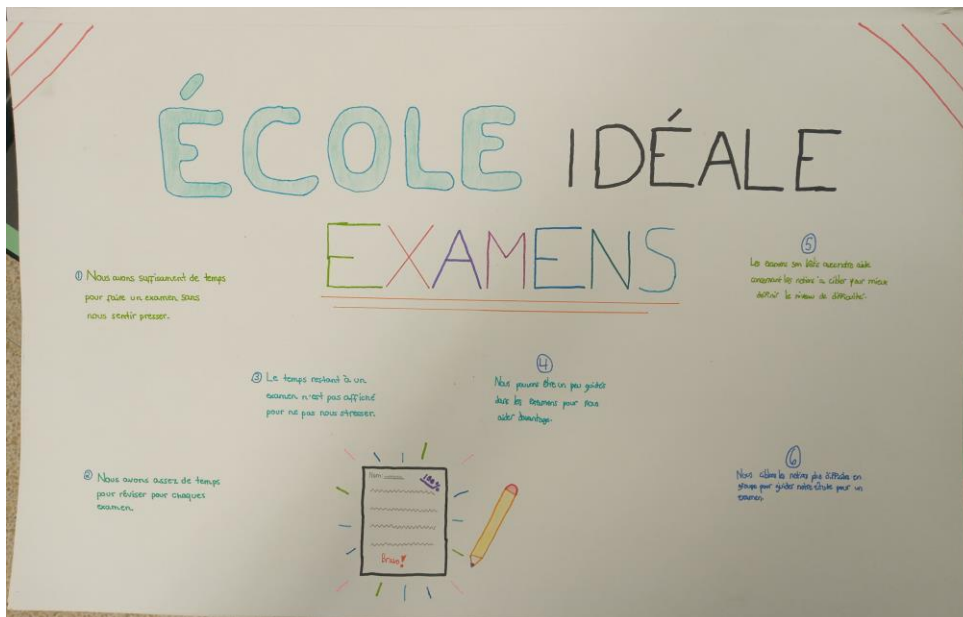 ÉCOLE IDÉALE
EXAMENS
① Nous avons suffisament de temps
pour faire un examen sans
nous sentir presser.
② Nous avons assez de temps
pour réviser pour chaques
examen.
③ Le temps restant à un
examen n'est pas affiché
pour ne pas nous stresser.
④
Nous pouvons être un peu guider
dans les examens pour nous
aider davantage.
⑤
Les examens son bâtis
concernant les notions à cibler pour mieux
définir le niveau de difficulté.
⑥
Nous ciblons les notions plus difficiles en
groupe pour guider notre étude pour un
examen
Nom:
100%
Bravo!